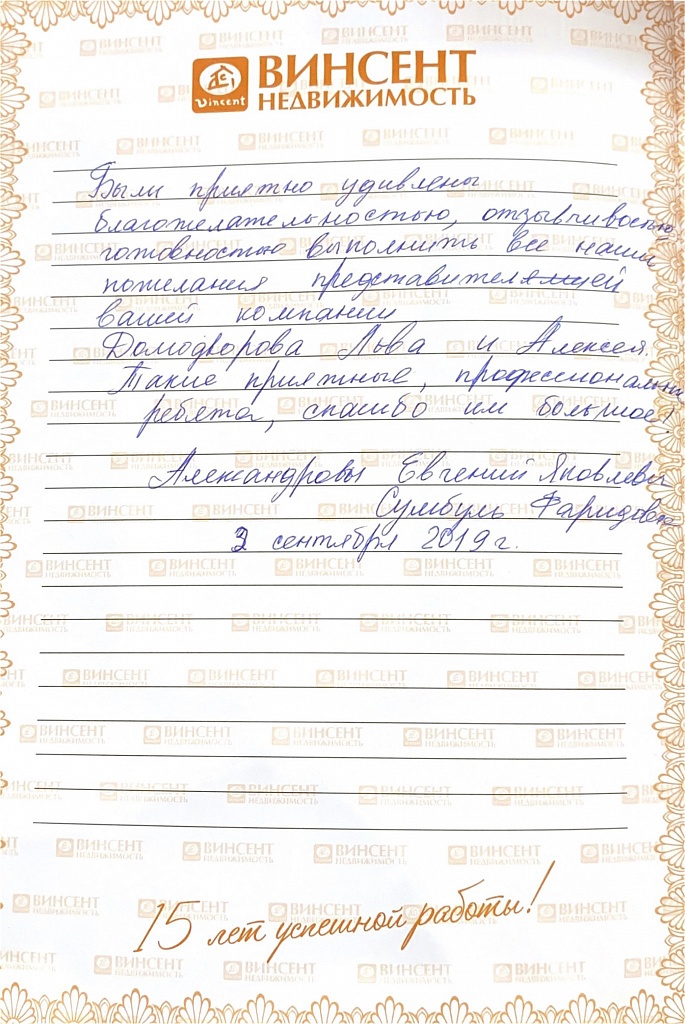 Vincent
ВИНСЕНТ
НЕДВИЖИМОСТЬ
Были приятно удивлены
благожелательностью, отзывчивостью,
готовностью выполнить все наши
пожелания представителямией
вашей компании
Домодворова Льва и Алексея.
Такие приятные, профессиональные
ребята, спасибо им большое!
Александровы Евгений Яковлевич
Сумбуль Фаридовна
2 сентября 2019 г.
15 лет успешной работы!